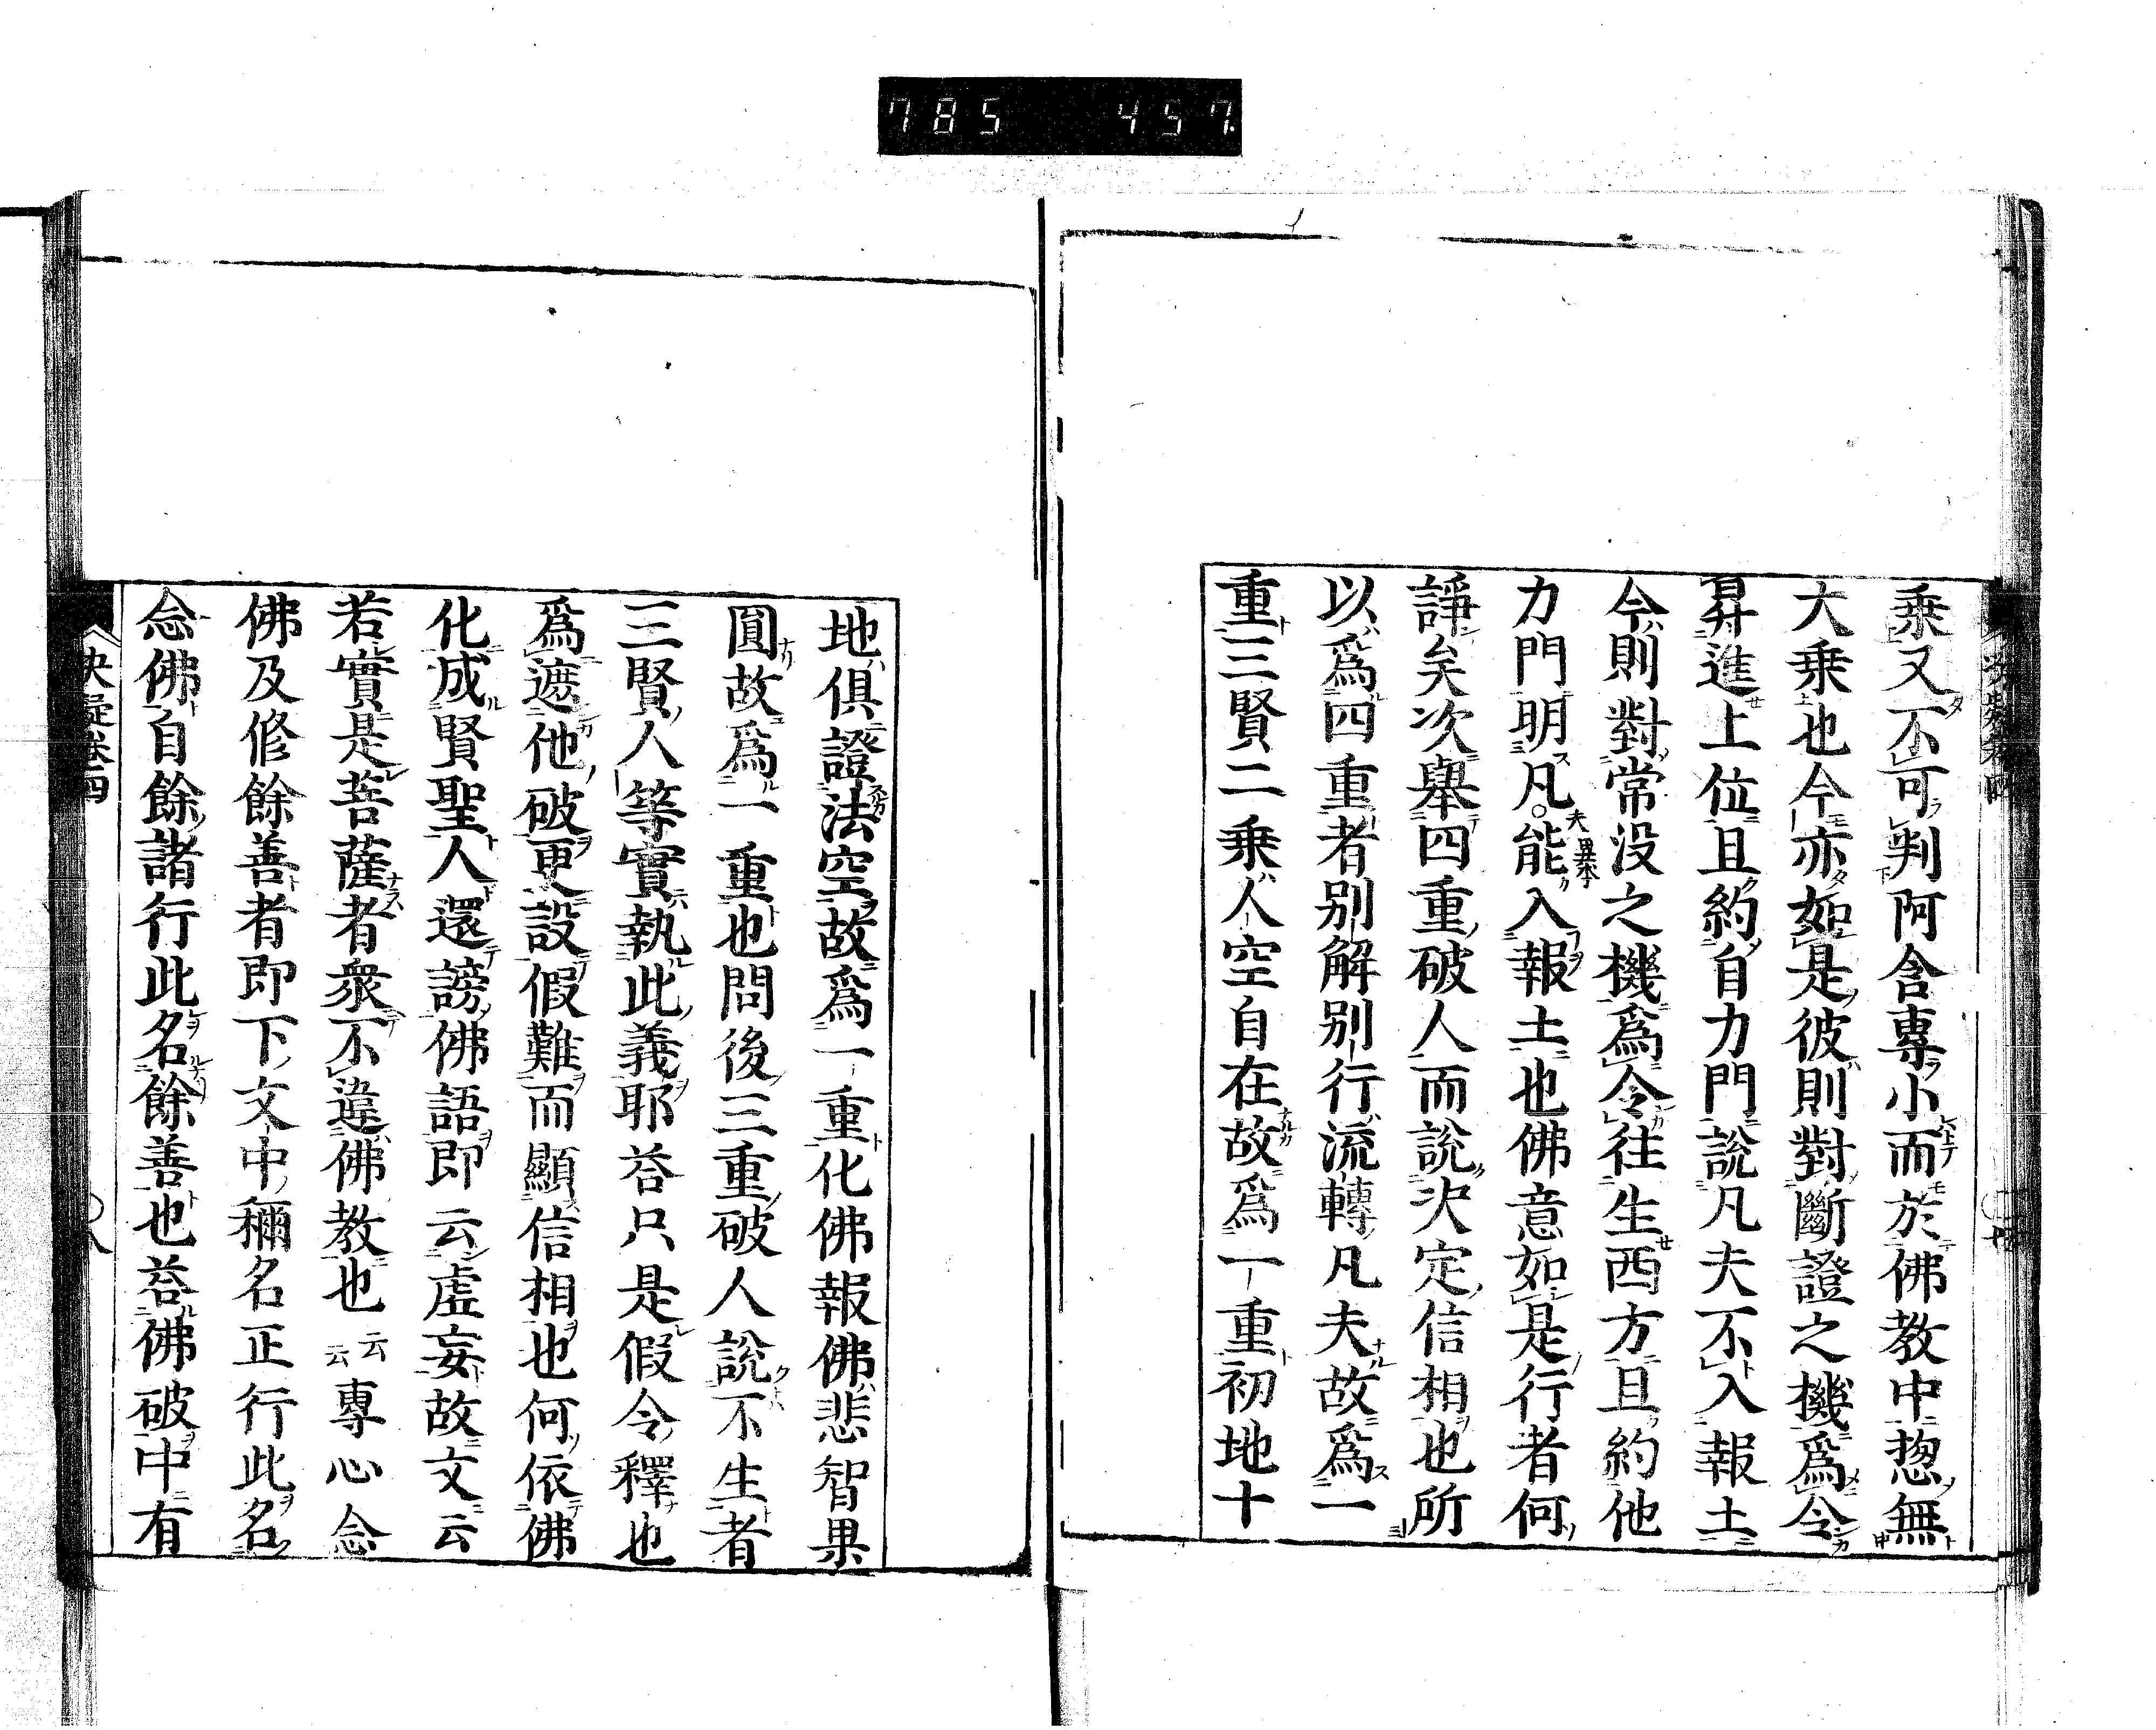 785 457
乗又不可判阿含專小而於佛教中揔無
大乗也今亦如是彼則對斷證之機爲令
昇進上位且約自力門說凡夫不入報土
今則對常没之機爲令往生西方且約他
力門明凡能入報土也佛意如是行者何
夫異本
諍矣次舉四重破人而說決定信相也所
以爲四重者別解別行流轉凡夫故爲一
重三賢二乗人空自在故爲一重初地十
地俱證法空故爲一重化佛報佛悲智果
圓故爲一重也問後三重破人說不生者
三賢人等實執此義耶荅只是假令釋也
爲遮他破更設假難而顯信相也何依佛
化成賢聖人還謗佛語即云虛妄故文云
若實是菩薩者衆不違佛教也云云專心念
佛及修餘善者即下文中稱名正行此名
念佛自餘諸行此名餘善也荅佛破中有
决疑卷四